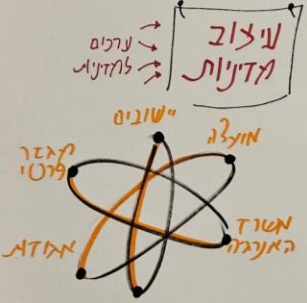 עיצוב
מדיניות
ערכים
למדיניות
יישובים
מועצה
מגזר
פרטי
משרד
האנרגיה
אגודות